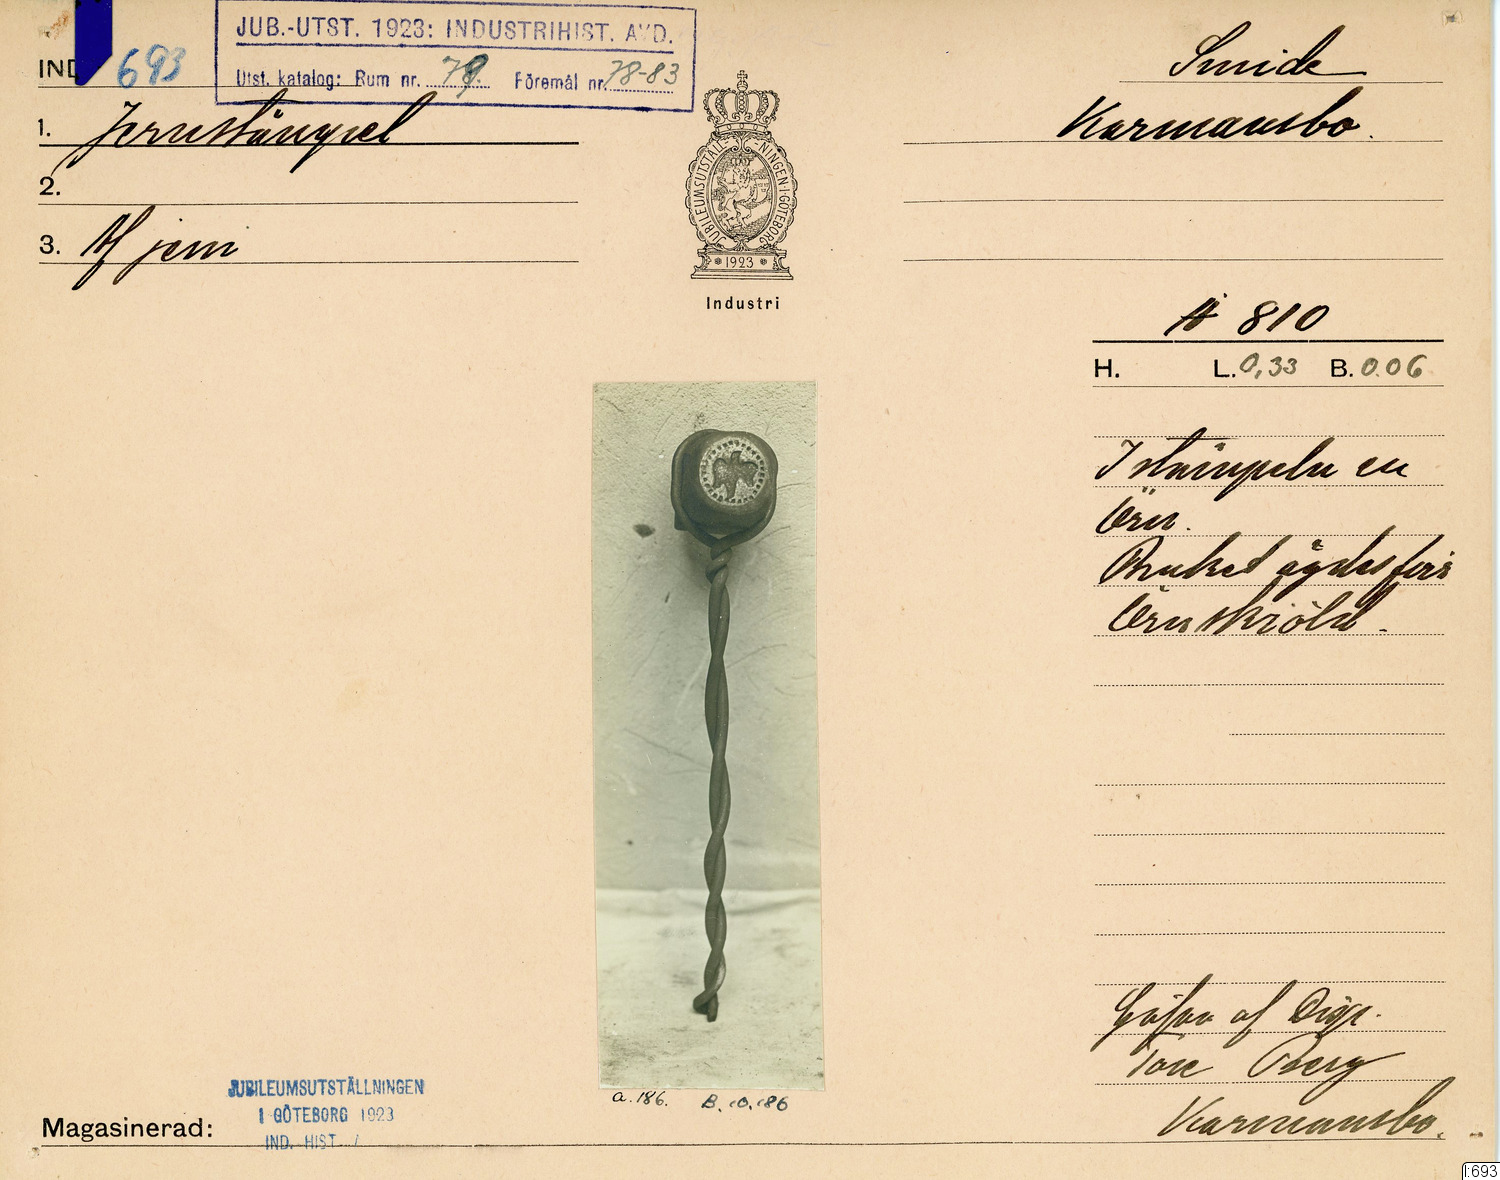 JUB.-UTST. 1923: INDUSTRIHIST. AVD.
Utst. katalog: Rum nr. 79. Föremål nr. 78-83
IND 693
1. Jernstämpel
2.
3. Af jern
JUBILEUMSUTSTÄLL-NINGEN·I·GÖTEBORG
1923
Industri
Smide
Karmansbo.
A 810
H. L. 0,33 B. 0.06
I stämpeln en
Örn.
Bruket ägdes förr
Örnskjöld.
Gåfva af Disp.
Tore Berg
Karmansbo.
a. 186. B. 10.186
JUBILEUMSUTSTÄLLNINGEN
I GÖTEBORG 1923
IND. HIST.
Magasinerad:
I:693